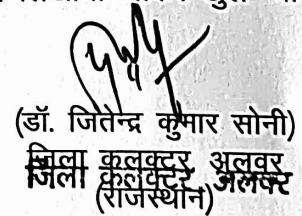 (डॉ. जितेन्द्र कुमार सोनी)
जिला कलक्टर अलवर
जिला कलेक्टर अलवर
(राजस्थान)